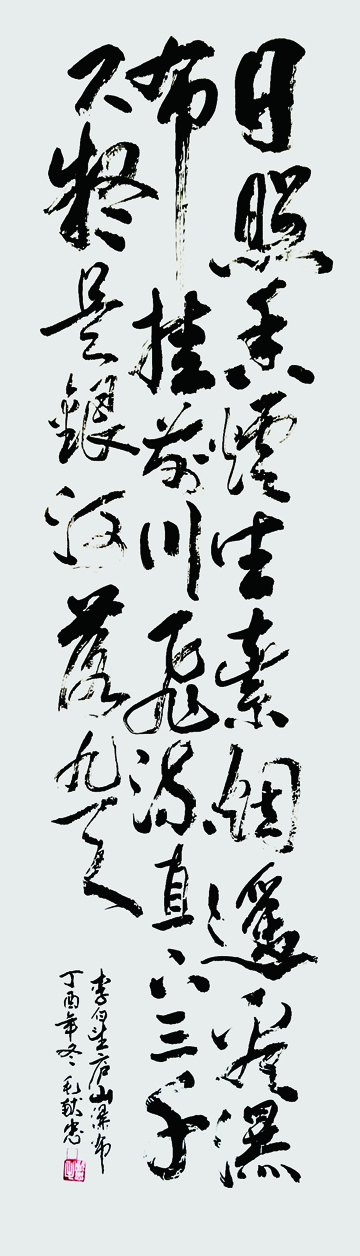 日照香爐生紫烟遥看瀑
布挂前川飛流直下三千
尺疑是銀河落九天
李白望庐山瀑布
丁酉年冬 毛 忠